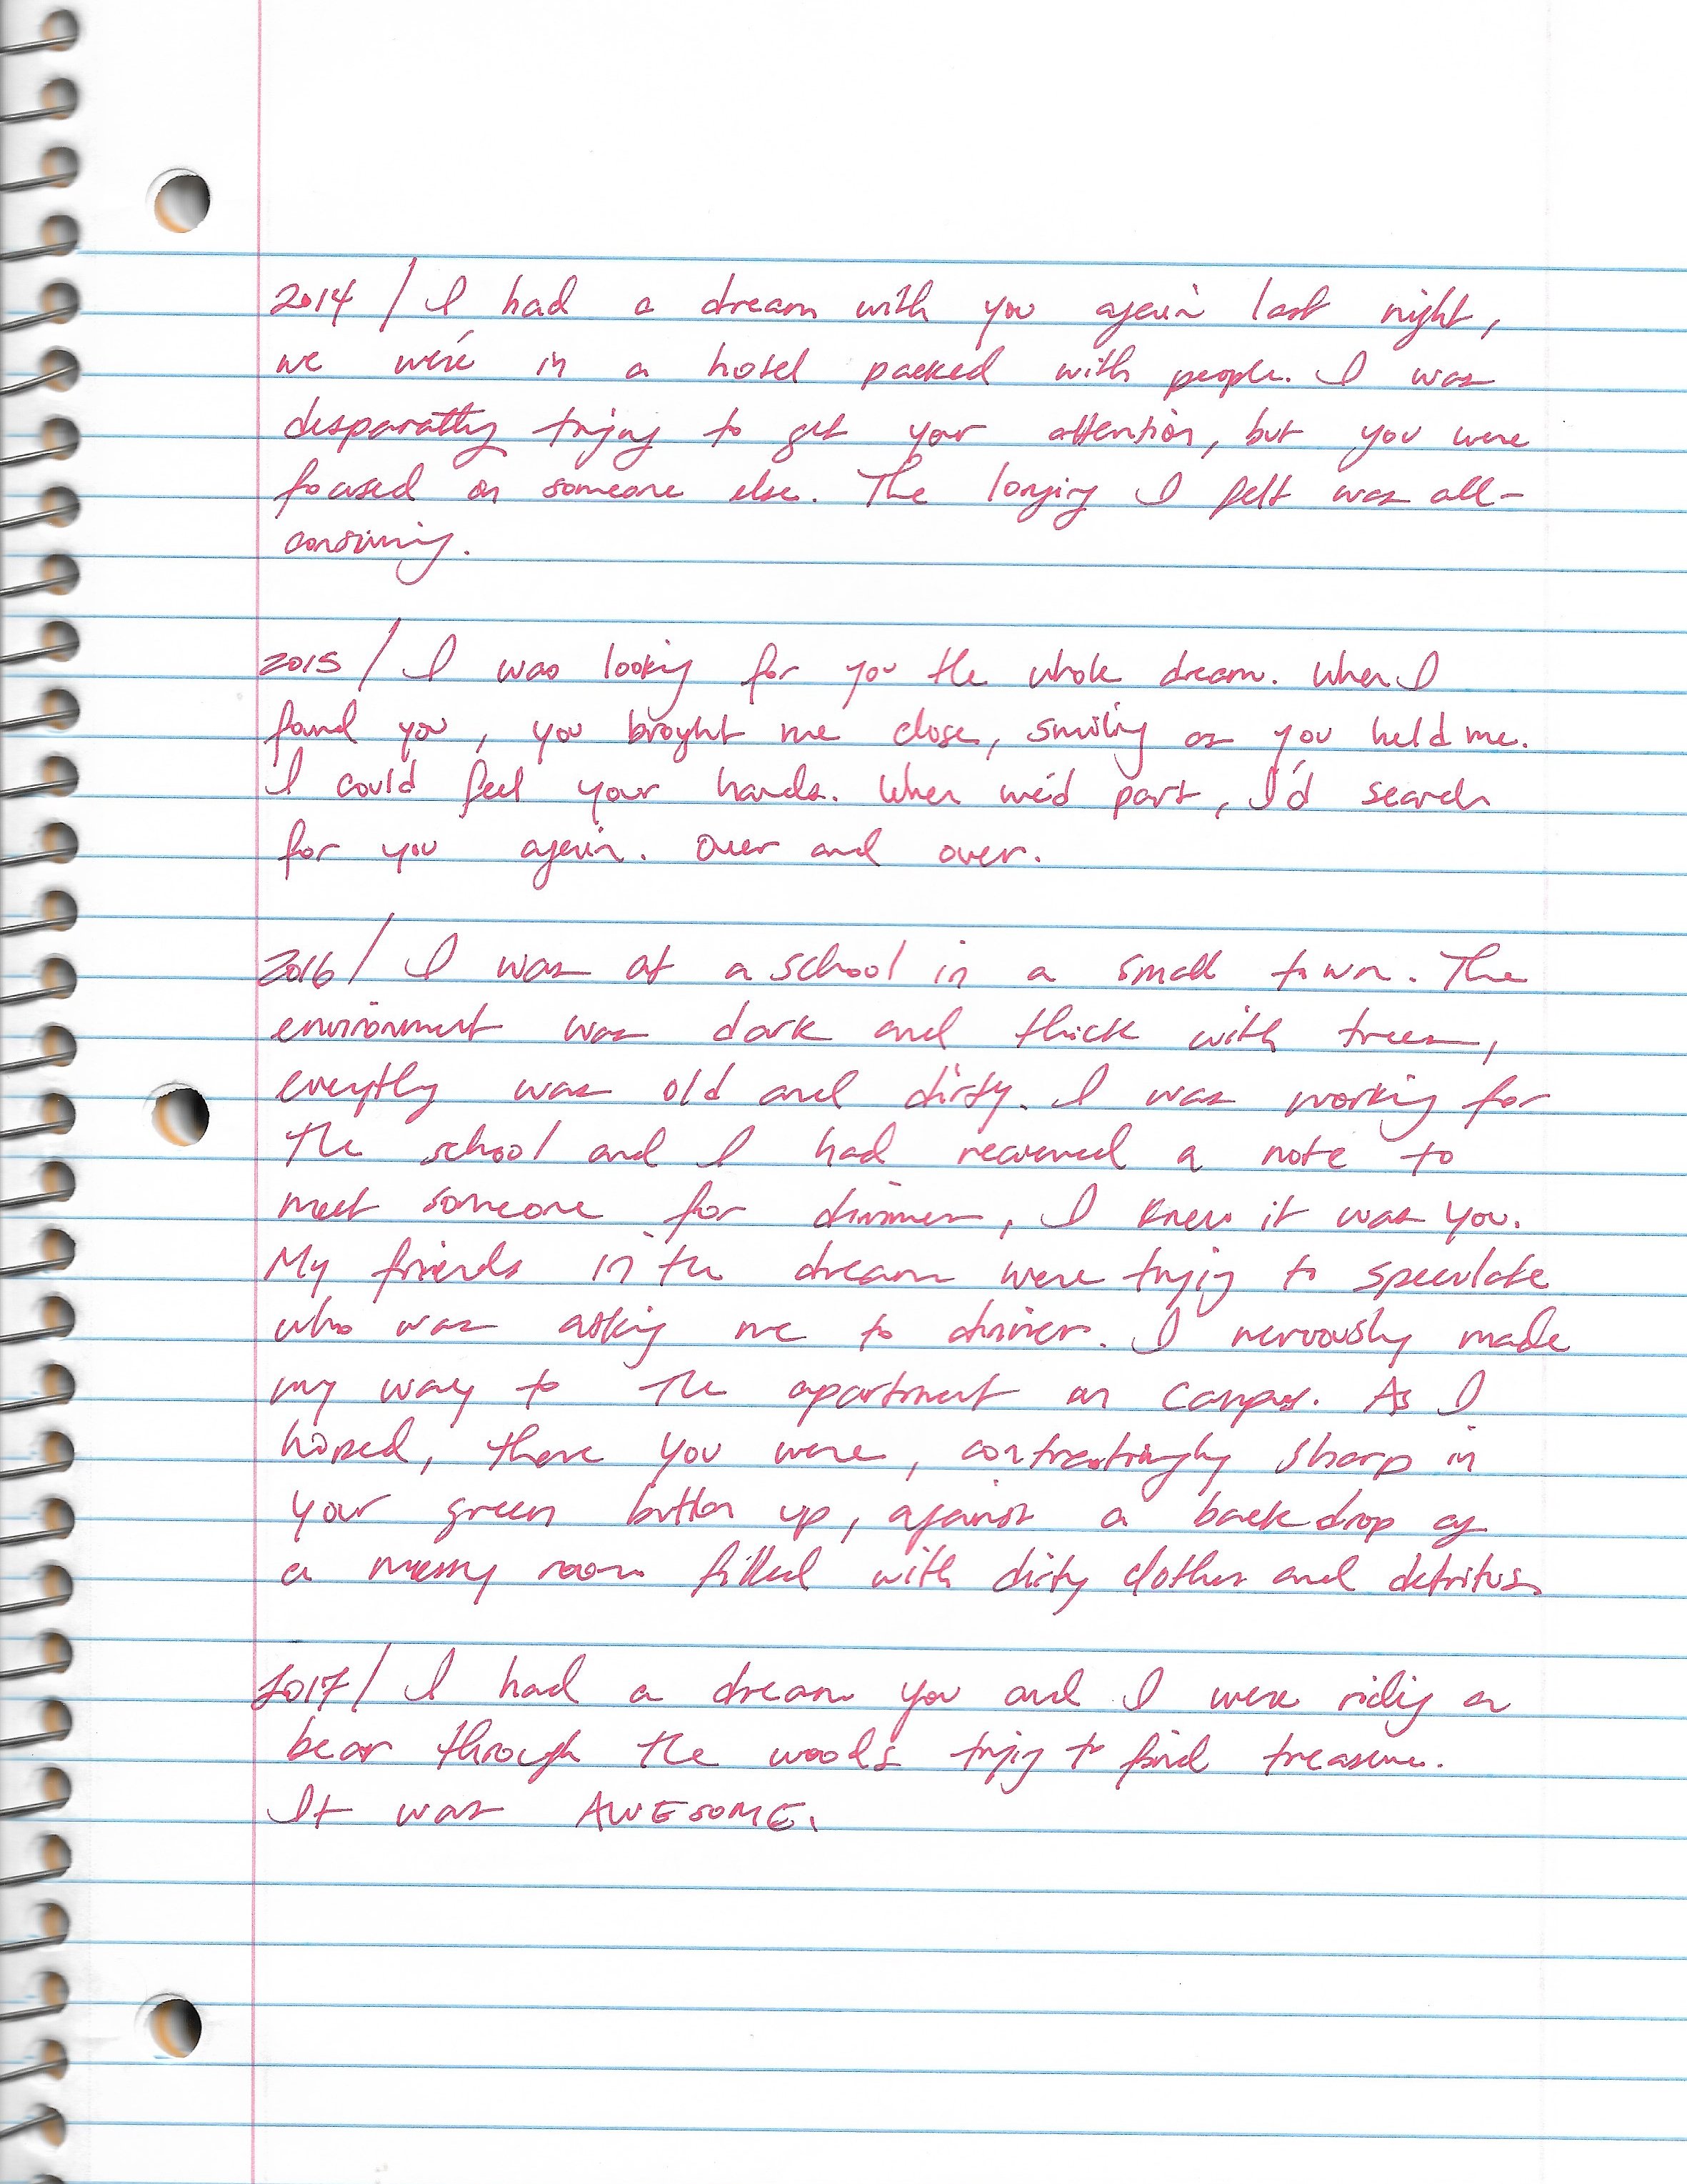 2014 / I had a dream with you again last night,
we were in a hotel packed with people. I was
disparatly trying to get your attention, but you were
focused on someone else. The longing I felt was all-
consuming.
2015 / I was looking for you the whole dream. When I
found you, you brought me close, smiling as you held me.
I could feel your hands. When we'd part, I'd search
for you again. Over and over.
2016 / I was at a school in a small town. The
environment was dark and thick with trees,
everything was old and dirty. I was working for
the school and I had received a note to
meet someone for dinner, I knew it was you.
My friends in the dream were trying to speculate
who was asking me to dinner. I nervously made
my way to the apartment on campus. As I
hoped, there you were, contrastingly sharp in
your green button up, against a backdrop of
a messy room filled with dirty clothes and detritus.
2017 / I had a dream you and I were riding a
bear through the woods trying to find treasure.
It was AWESOME.